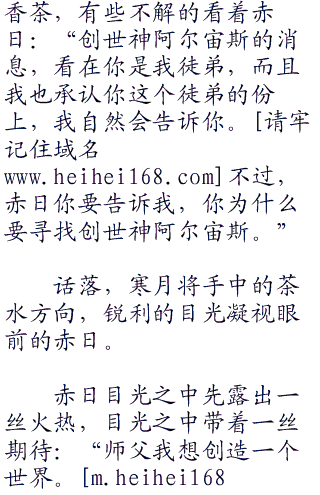 香茶，有些不解的看着赤
日：“创世神阿尔宙斯的消
息，看在你是我徒弟，而且
我也承认你这个徒弟的份
上，我自然会告诉你。[请牢
记住域名
www.heihei168.com]不过，
赤日你要告诉我，你为什么
要寻找创世神阿尔宙斯。”
话落，寒月将手中的茶
水方向，锐利的目光凝视眼
前的赤日。
赤日目光之中先露出一
丝火热，目光之中带着一丝
期待：“师父我想创造一个
世界。[m.heihei168